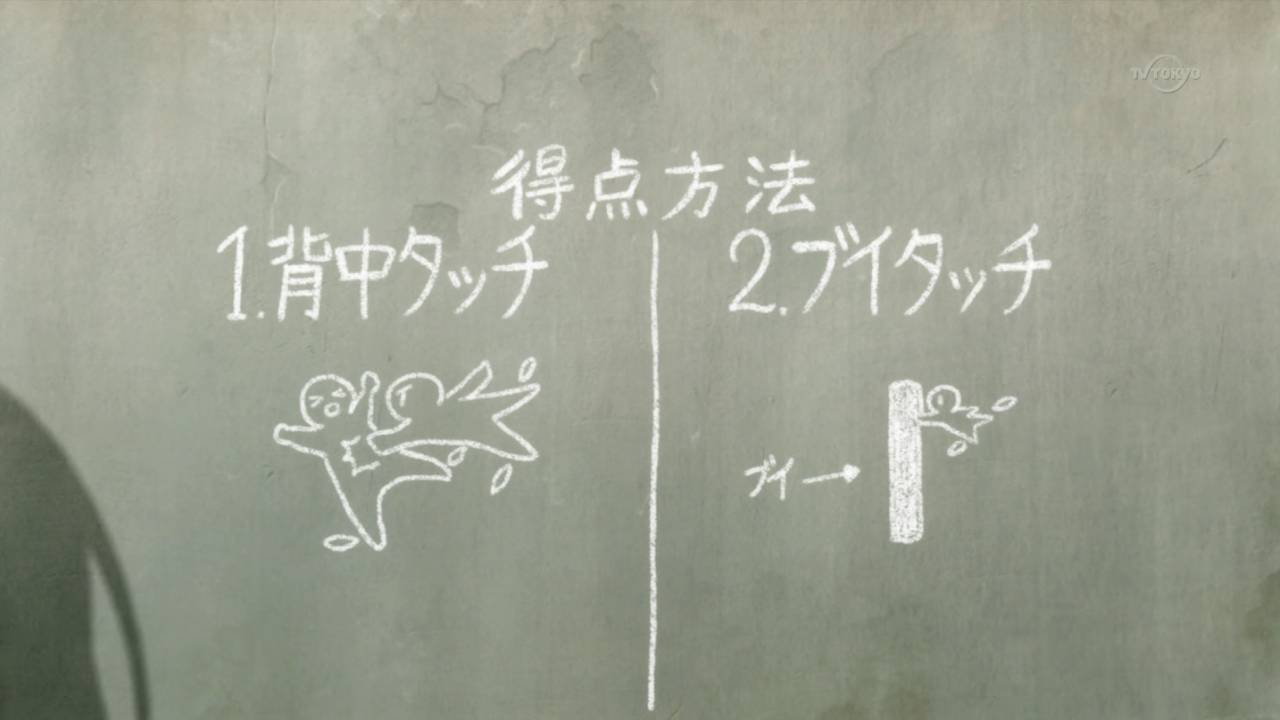 TV TOKYO
得点方法
1.背中タッチ
2.ブイタッチ
ブイ→